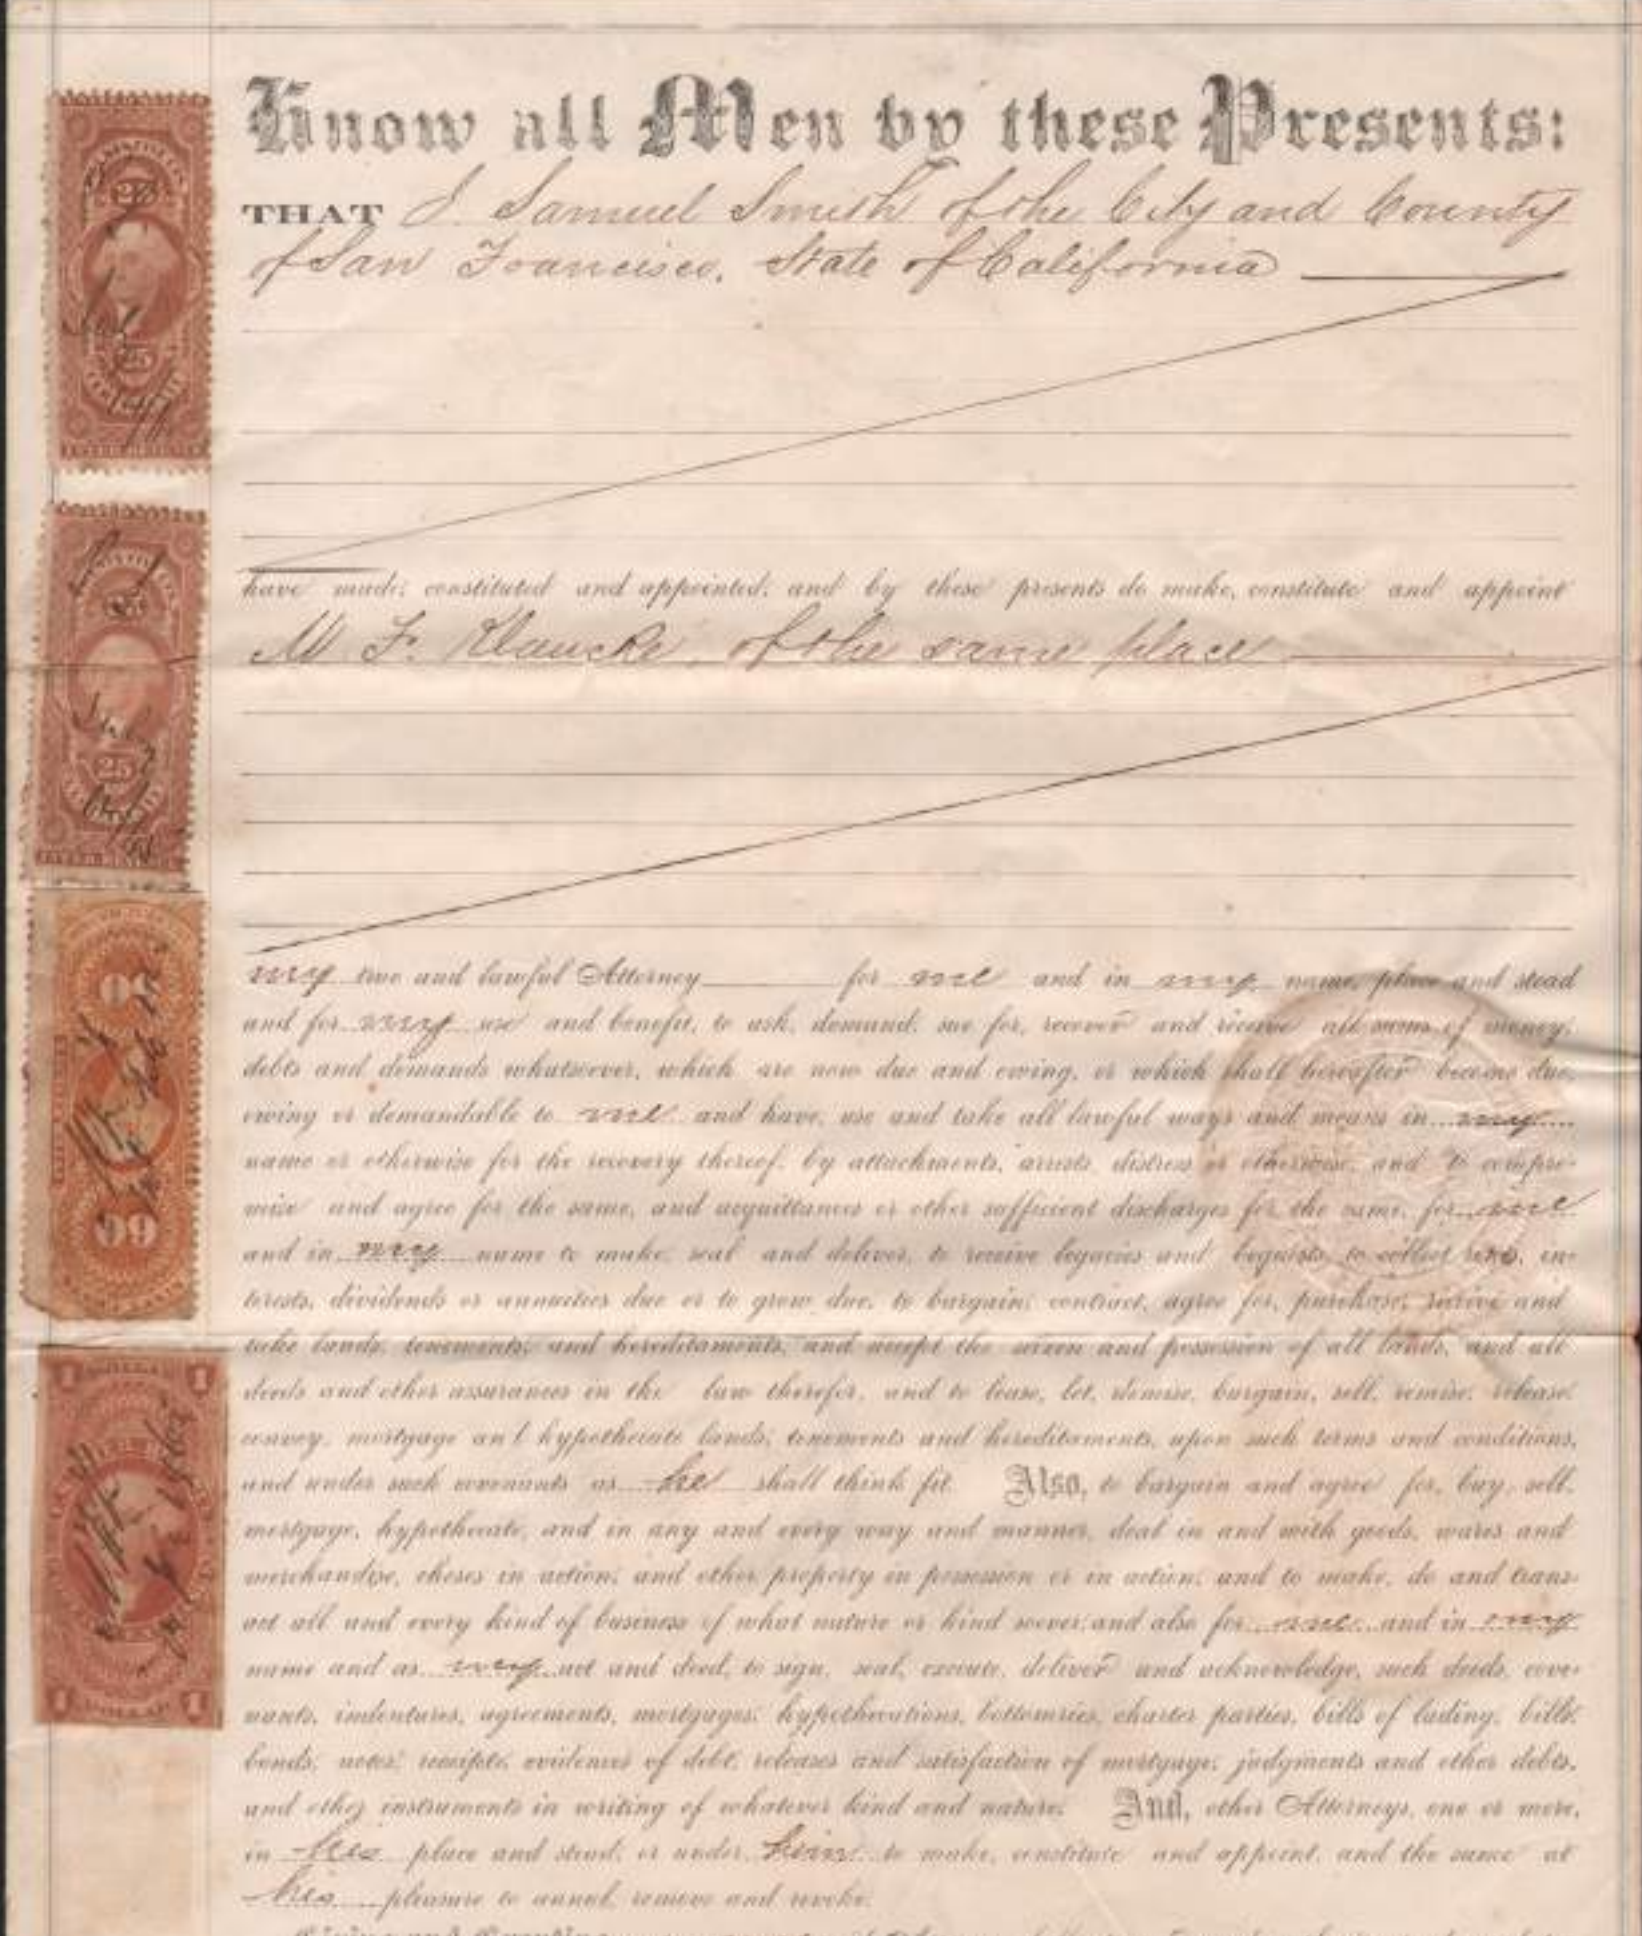 Know all Men by these Presents:
THAT I Samuel Smith of the City and County
of San Francisco, State of California
have made, constituted and appointed, and by these presents do make, constitute and appoint
M F. Klaucke, of the same place
my true and lawful Attorney for me and in my name, place and stead
and for my use and benefit, to ask, demand, sue for, recover and receive all sums of money,
debts and demands whatsoever, which are now due and owing, or which shall hereafter become due,
owing or demandable to me and have, use and take all lawful ways and means in my
name or otherwise for the recovery thereof, by attachments, arrests, distress or otherwise, and to compro-
mise and agree for the same, and acquittances or other sufficient discharges for the same, for me
and in my name to make, seal and deliver, to receive legacies and bequests, to collect rents, in-
terests, dividends or annuities due or to grow due, to bargain, contract, agree for, purchase, receive and
take lands, tenements, and hereditaments, and accept the seizen and possession of all lands, and all
deeds and other assurances in the law therefor, and to lease, let, demise, bargain, sell, remise, release,
convey, mortgage an l hypothecate lands, tenements and hereditaments, upon such terms and conditions,
and under such covenants as he shall think fit. Also, to bargain and agree for, buy, sell,
mortgage, hypothecate, and in any and every way and manner, deal in and with goods, wares and
merchandize, choses in action, and other property in possession or in action, and to make, do and trans-
act all and every kind of business of what nature or kind soever, and also for me and in my
name and as my act and deed, to sign, seal, execute, deliver and acknowledge, such deeds, cove-
nants, indentures, agreements, mortgages, hypothecations, bottomries, charter parties, bills of lading, bills,
bonds, notes, receipts, evidences of debt, releases and satisfaction of mortgage, judgments and other debts,
and other instruments in writing of whatever kind and nature. And, other Attorneys, one or more,
in his place and stead, or under him to make, constitute and appoint, and the same at
his pleasure to annul, remove and revoke.
25
25
1 DOLLAR 1
1 DOLLAR 1